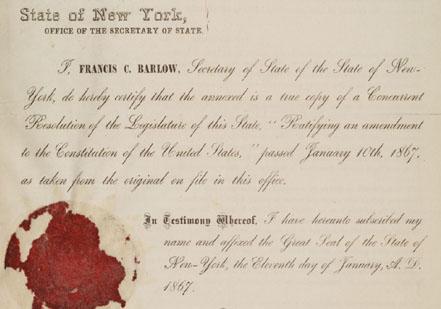 State of New York,
OFFICE OF THE SECRETARY OF STATE.
I, FRANCIS C. BARLOW, Secretary of State of the State of New-
York, do hereby certify that the annexed is a true copy of a Concurrent
Resolution of the Legislature of this State, "Ratifying an amendment
to the Constitution of the United States," passed January 10th, 1867,
as taken from the original on file in this office.
In Testimony Whereof, I have hereunto subscribed my
name and affixed the Great Seal of the State of
New-York, the Eleventh day of January, A. D.
1867.